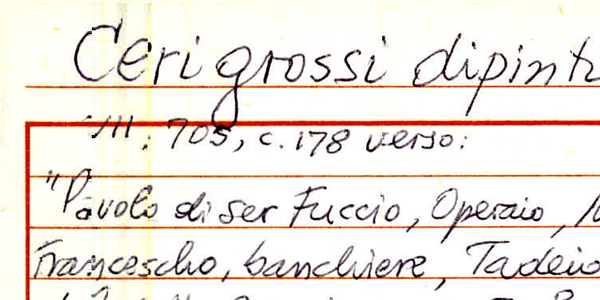 Ceri grossi dipinti
VII: 705, c. 178 verso:
"Pavolo di ser Fuccio, Operaio,
Francescho, banchiere, Tadeio